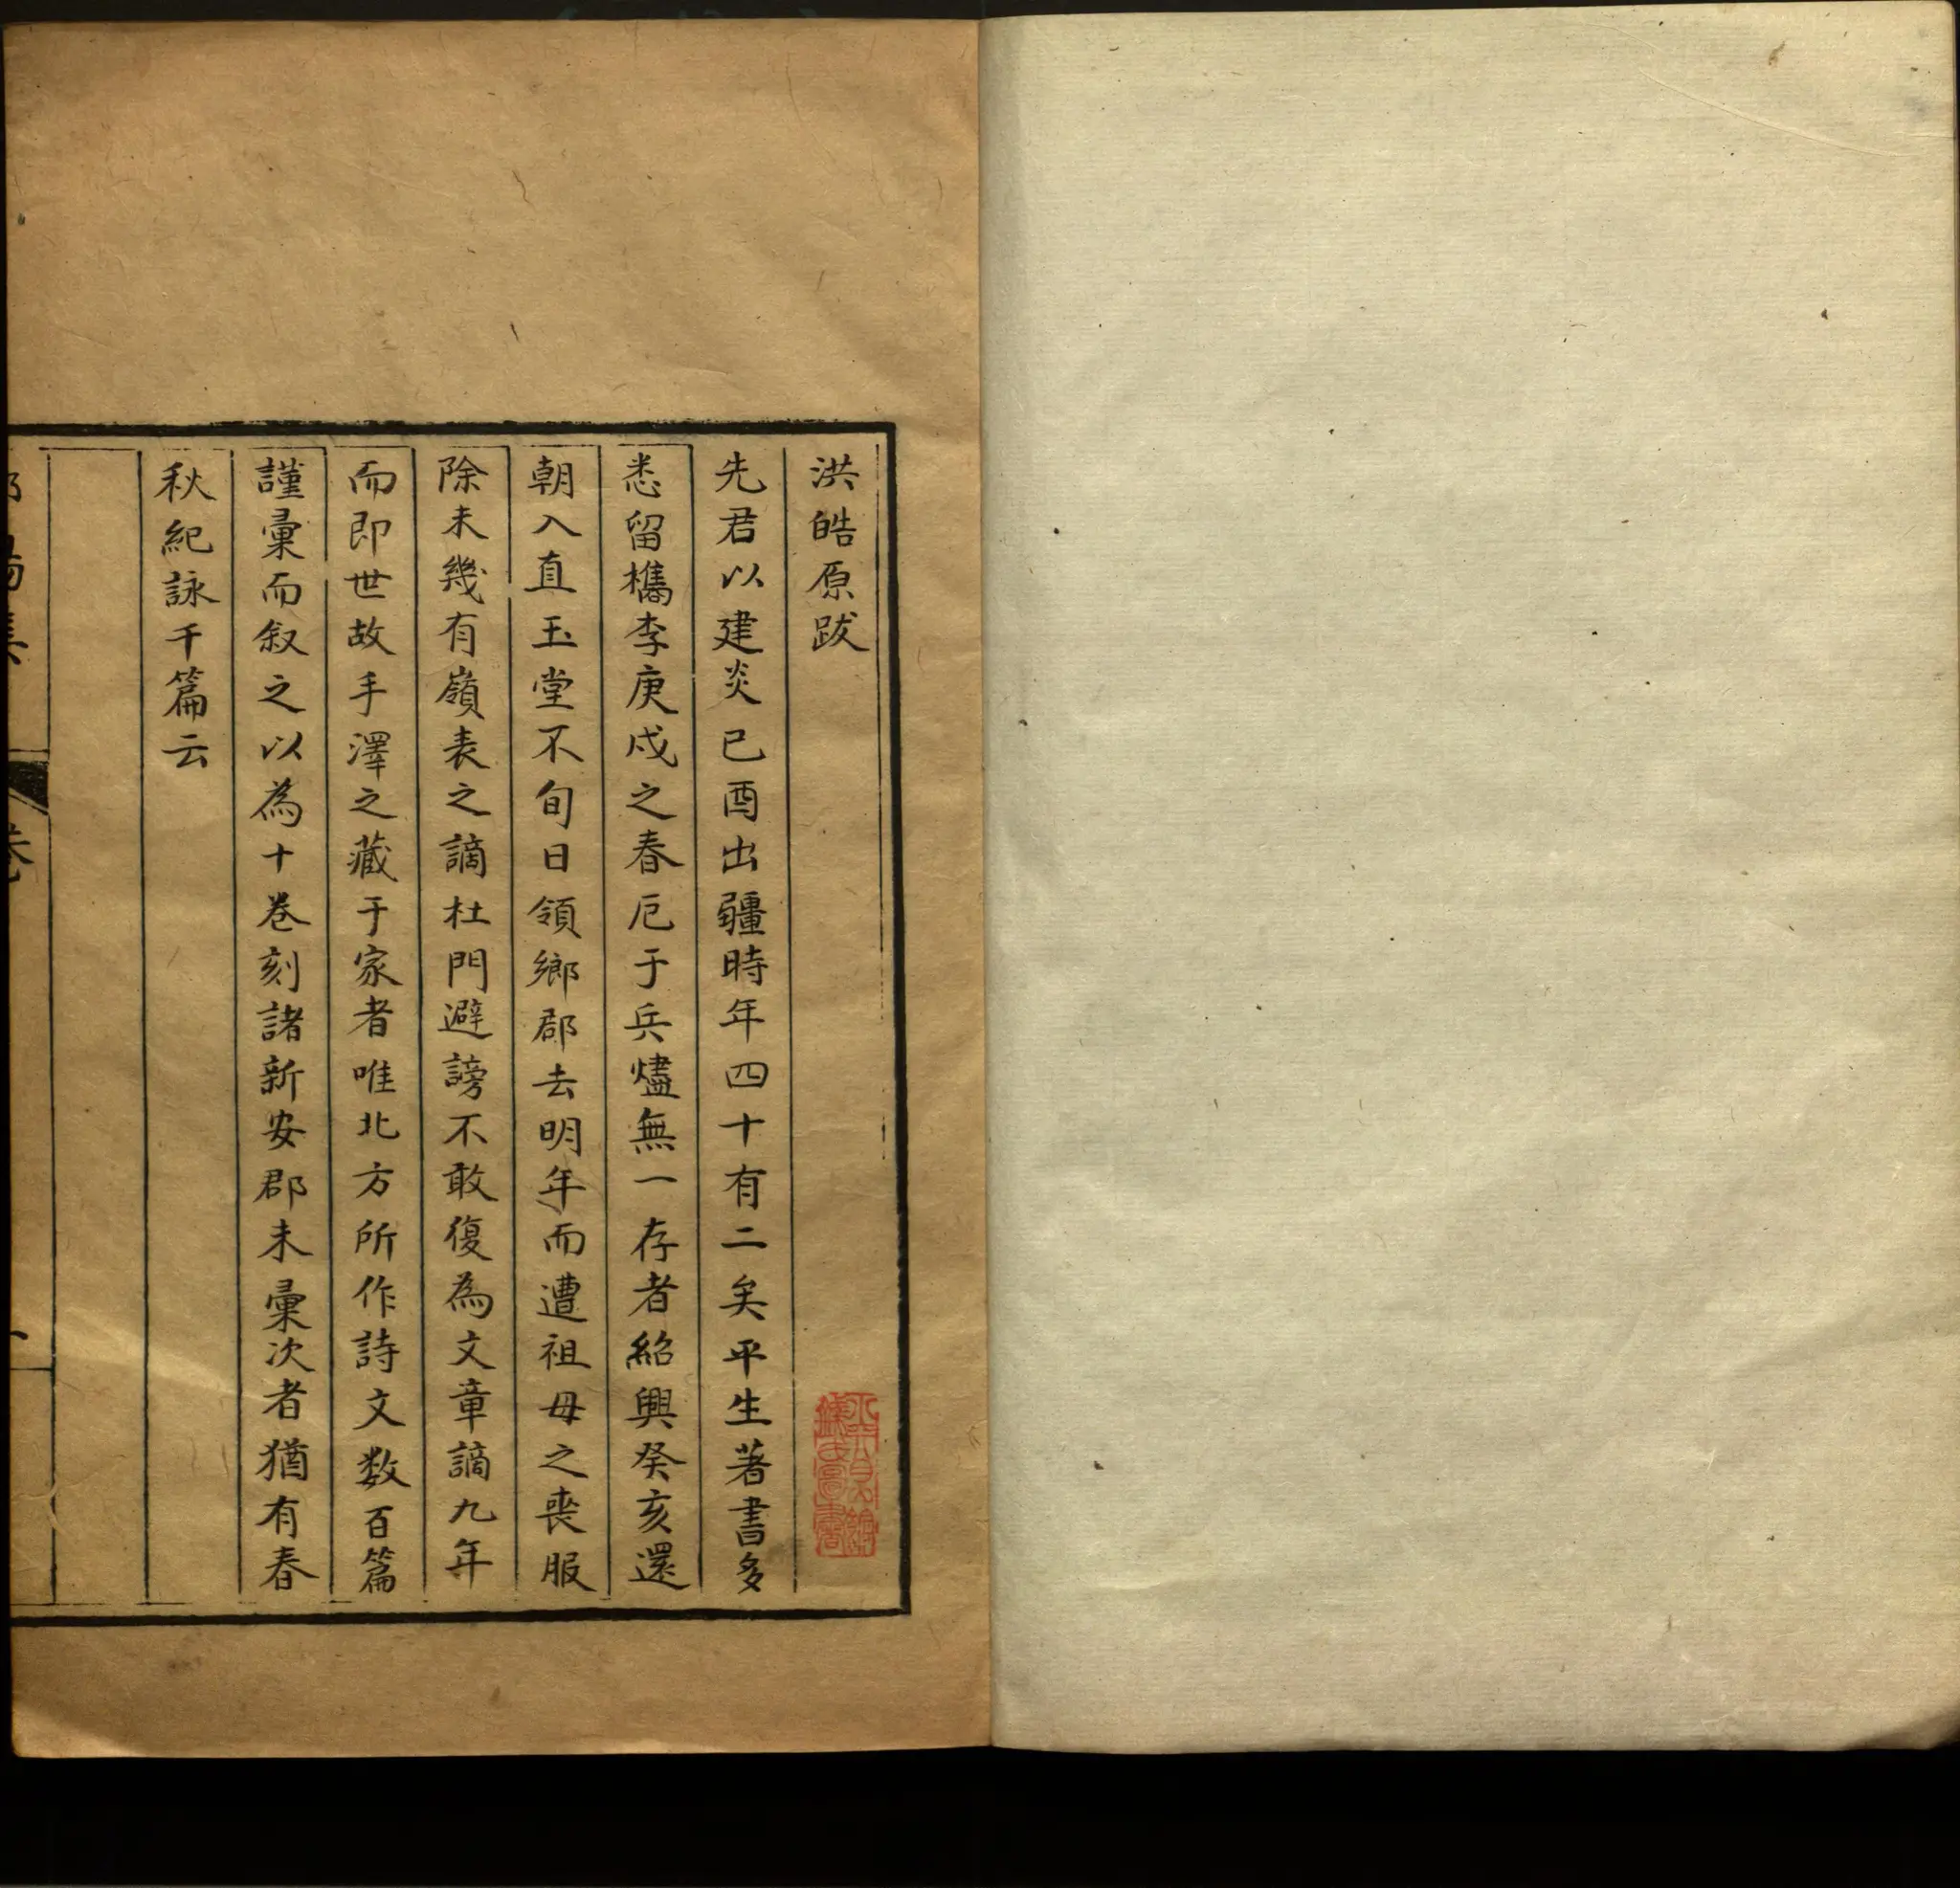 洪皓原跋
先君以建炎已酉出疆時年四十有二矣平生著書多
悉留檇李庚戍之春厄于兵燼無一存者紹興癸亥還
朝入直玉堂不旬日領鄉郡去明年而遭祖母之喪服
除未幾有嶺表之謫杜門避謗不敢復為文章謫九年
而即世故手澤之藏于家者唯北方所作詩文数百篇
謹彙而叙之以為十卷刻諸新安郡未彙次者猶有春
秋紀詠千篇云